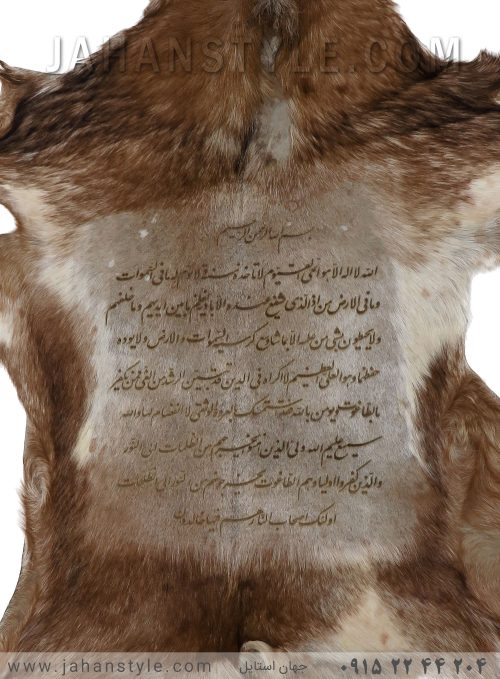 JAHANSTYLE.COM
بسم الله الرحمن الرحیم
الله لا اله الا هو الحی القیوم لا تاخذه سنة و لا نوم له ما فی السموات
و ما فی الارض من ذا الذی یشفع عنده الا باذنه یعلم ما بین ایدیهم و ما خلفهم
و لا یحیطون بشی من علمه الا بما شا وسع کرسیه السموات و الارض و لا یوده
حفظهما و هو العلی العظیم لا اکراه فی الدین قد تبین الرشد من الغی فمن یکفر
بالطاغوت و یومن بالله فقد استمسک بالعروة الوثقی لا انفصام لها و الله
سمیع علیم الله ولی الذین امنو یخرجهم من الظلمات الی النور
و الذین کفروا اولیاوهم الطاغوت یخرجونهم من النور الی الظلمات
اولئک اصحاب النار هم فیها خالدون
www.jahanstyle.com جهان استایل ۰۹۱۵ ۲۲ ۴۴ ۲۰۴